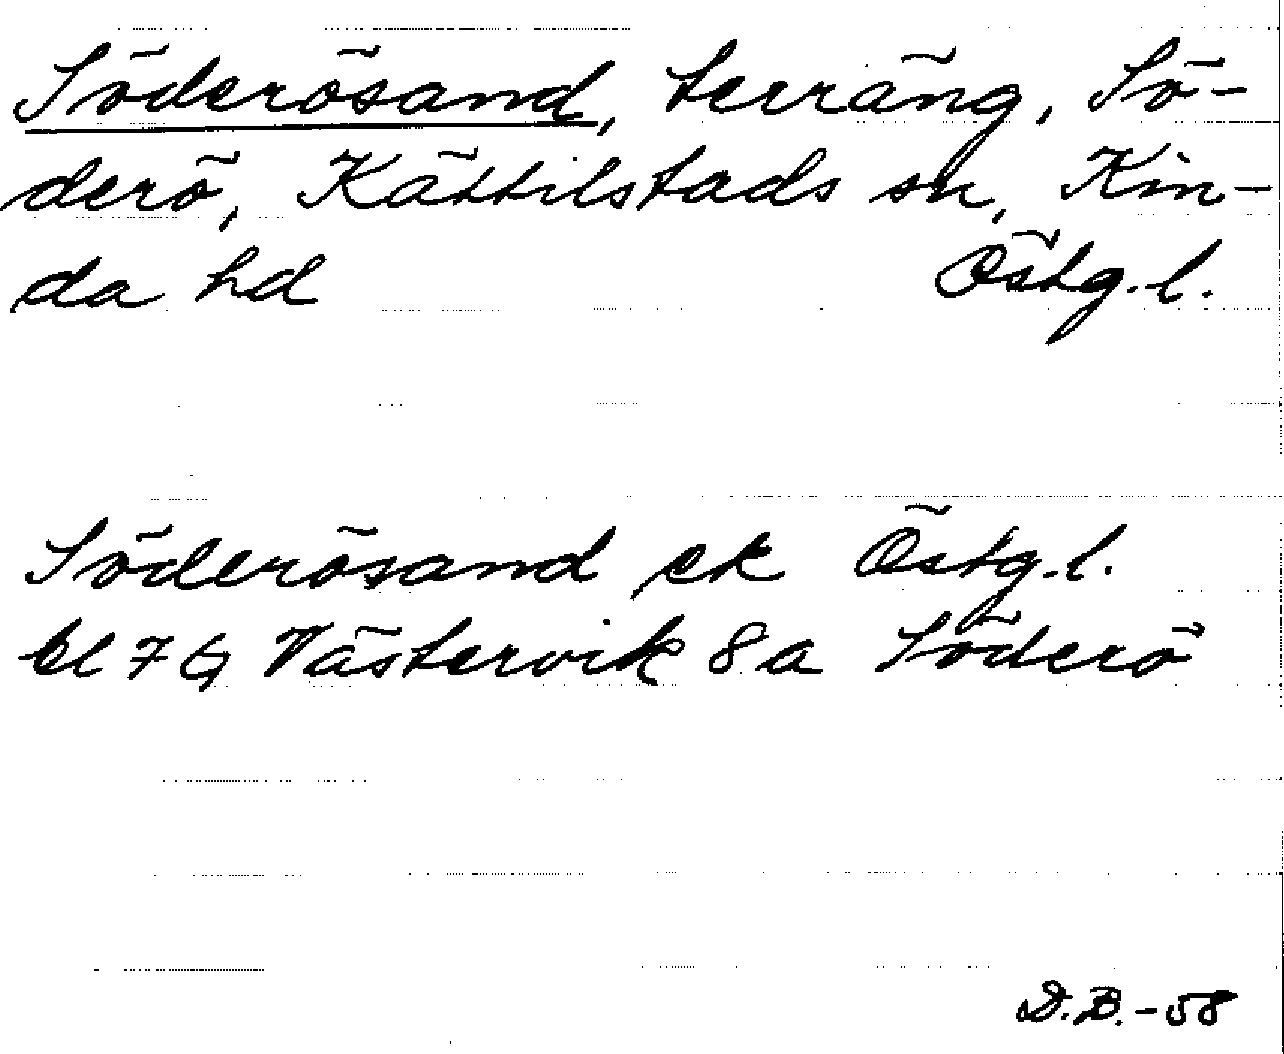 Söderösand, terräng, Sö-
derö, Kättilstads sn, Kin-
da hd Östg.l.
Söderösand ek Östg.l.
bl 7 G Västervik 8 a Söderö
D.B.-58